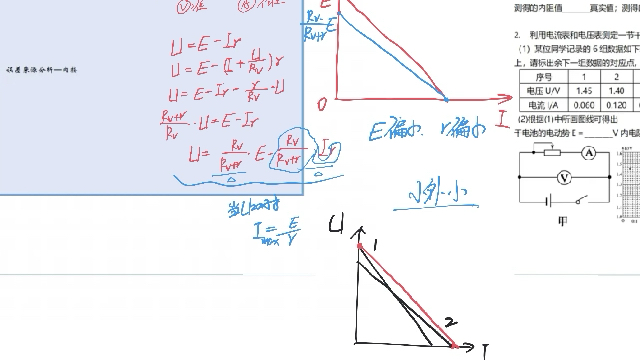 误差来源分析—内接
U=E-Ir
U=E-(I+U/Rv)r
U=E-Ir-r/Rv·U
Rv+r/Rv·U=E-Ir
U=Rv/Rv+r·E-Rv/Rv+r·Ir
当U=0时
Imax=E/r
E
Rv/Rv+r E
O
I
E偏小、r偏小
小外小
U
1
2
I
测得的内阻值
真实值；测得
2. 利用电流表和电压表测定一节干
（1）某位同学记录的 6 组数据如下
上，请标出余下一组数据的对应点，
序号 1 2
电压 U/V 1.45 1.40
电流 I/A 0.060 0.120
(2)根据(1)中所画图线可得出
干电池的电动势 E = V 内电
A
V
甲